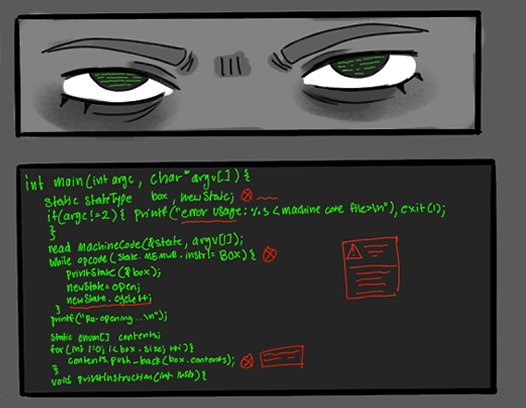 int main(int argc, char* argv[]) {
static stateType box, newState;
if(argc!=2) { printf("error usage: %s <machine code file>\n"), exit(1);
}
read machineCode(&state, argv[]);
while opcode(state. MEMWB. instr != BOX) {
printState(& box);
newState=open;
newState. cycle++;
}
printf("Re-opening...\n");
static enum[] contents;
for(int i=0; i< box. size; ++i) {
contents.push_back(box.contents);
}
void printInstruction(int instr) {